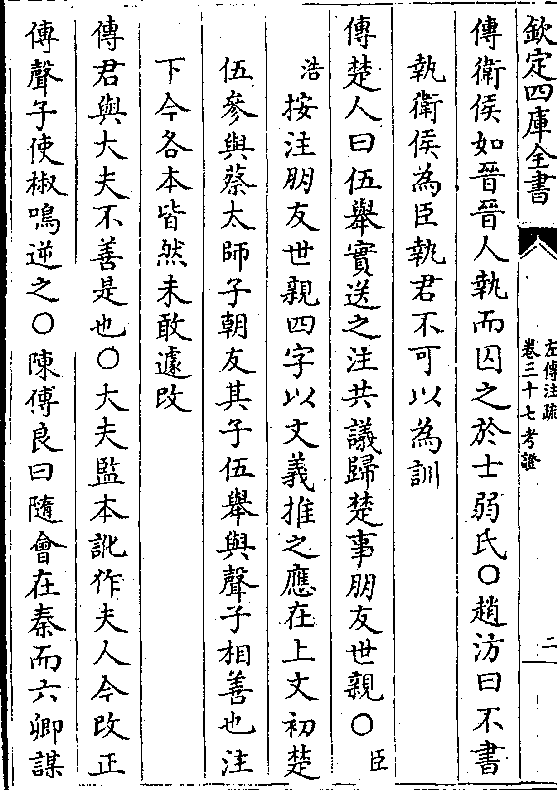 欽定四庫全書
左傳注疏
卷三十七考證
二
傳衛侯如晉晉人執而囚之於士弱氏〇趙汸曰不書
執衛侯為臣執君不可以為訓
傳楚人曰伍舉實送之注共議歸楚事朋友世親〇臣
浩按注朋友世親四字以文義推之應在上文初楚
伍參與蔡太師子朝友其子伍舉與聲子相善也注
下今各本皆然未敢遽改
傳君與大夫不善是也〇大夫監本訛作夫人今改正
傳聲子使椒鳴逆之〇陳傅良曰隨會在秦而六卿謀